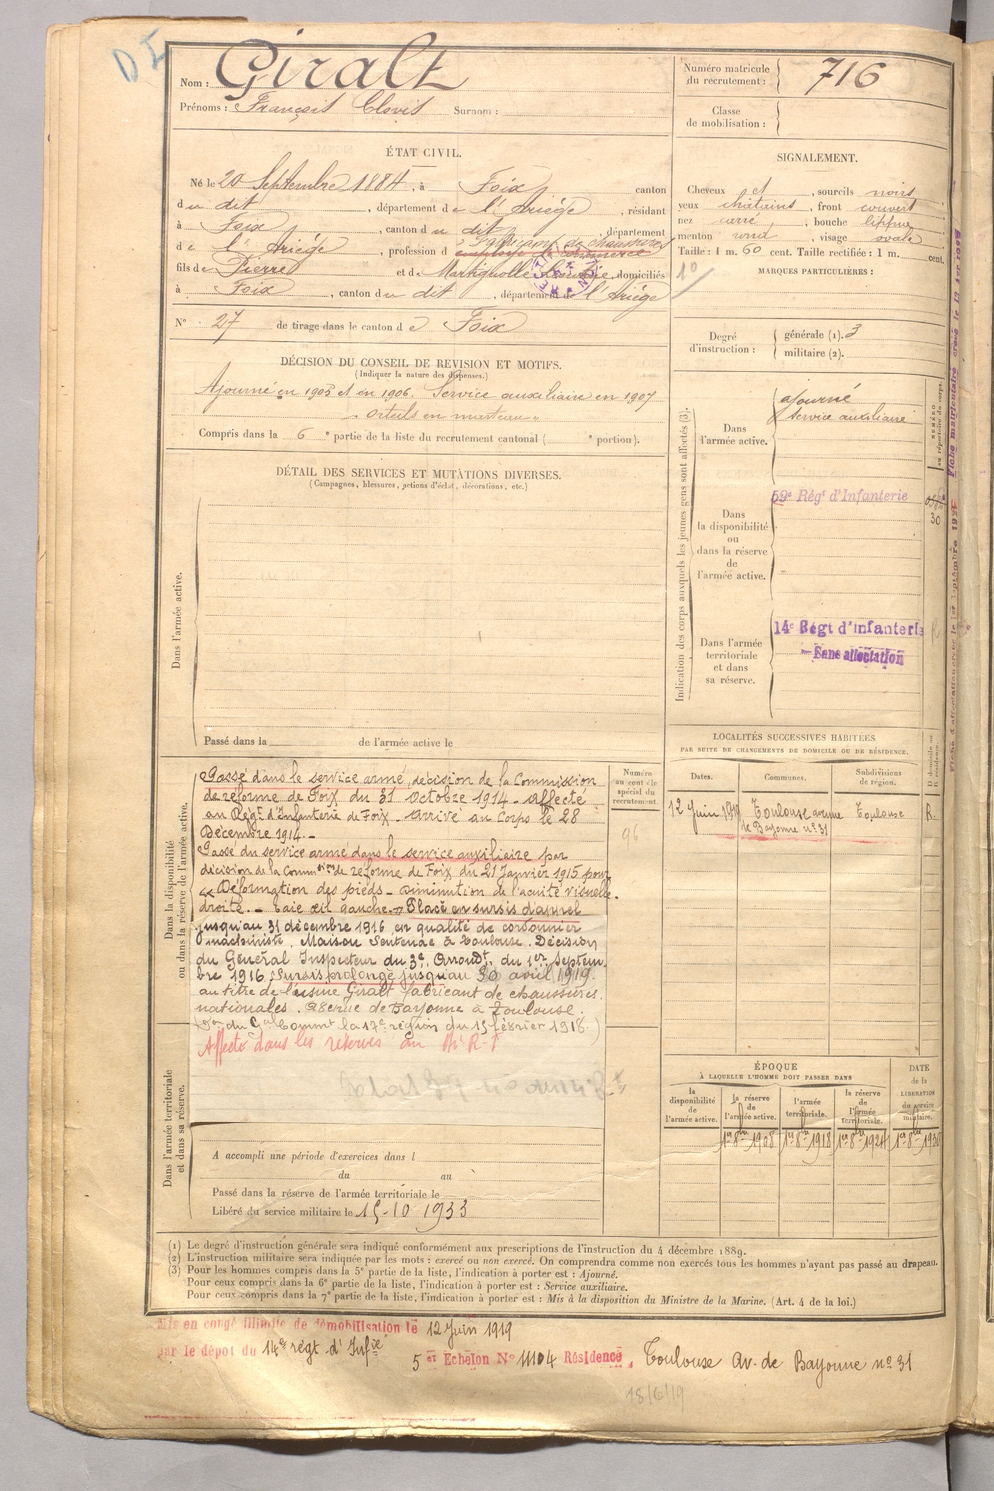 DI
Nom : Giralt
Prénoms : François Clovis Surnom :
Numéro matricule du recrutement : 716
Classe de mobilisation :
ÉTAT CIVIL.
Né le 20 Septembre 1884, à Foix, canton
du dit, département de l'Ariège, résidant
à Foix, canton du dit, département
de l'Ariège, profession d employé de commerce
Fabricant de chaussures
fils de Pierre et de Martignolle, domiciliés
à Foix, canton du dit, département de l'Ariège
N° 27 de tirage dans le canton de Foix
SIGNALEMENT.
Cheveux et, sourcils noirs
yeux châtains, front couvert
nez carré, bouche lippue
menton rond, visage ovale
Taille : 1 m. 60 cent. Taille rectifiée : 1 m. cent.
MARQUES PARTICULIÈRES :
10
Degré d'instruction :
générale (1). 3
militaire (2).
DÉCISION DU CONSEIL DE REVISION ET MOTIFS.
(Indiquer la nature des dispenses.)
Ajourné en 1905 et en 1906. Service auxiliaire en 1907
" orteils en marteau "
Compris dans la 6e partie de la liste du recrutement cantonal ( e portion).
DÉTAIL DES SERVICES ET MUTATIONS DIVERSES.
(Campagnes, blessures, actions d'éclat, décorations, etc.)
Dans l'armée active.
Passé dans la de l'armée active le
Indication des corps auxquels les jeunes gens sont affectés (3).
Dans l'armée active.
ajourné
Service auxiliaire
Dans la disponibilité ou dans la réserve de l'armée active.
59e Régt d'Infanterie
30
Dans l'armée territoriale et dans sa réserve.
14e Régt d'infanterie
Sans affectation
NUMÉRO au répertoire du corps.
LOCALITÉS SUCCESSIVES HABITÉES
PAR SUITE DE CHANGEMENTS DE DOMICILE OU DE RÉSIDENCE.
Dates. Communes. Subdivisions de région. D. domicile ou R. résidence.
12 Juin 1919 Toulouse avenue de Bayonne n° 31 Toulouse R.
Dans la disponibilité ou dans la réserve de l'armée active.
Numéro au contrôle spécial du recrutement.
96
Passé dans le service armé, décision de la Commission
de réforme de Foix du 31 octobre 1914 - affecté
au Régt d'Infanterie de Foix - Arrivé au Corps le 28
Décembre 1914. -
Passé du service armé dans le service auxiliaire par
décision de la Commion de réforme de Foix du 21 Janvier 1915 pour
« Déformation des pieds - diminution de l'acuité visuelle
droite. - Taie œil gauche. » Placé en sursis d'appel
jusqu'au 31 décembre 1916, en qualité de cordonnier
machiniste, Maison Sentenac à Toulouse. Décision
du Général Inspecteur du 3e Arrondt. du 1er Septem-
bre 1916. Sursis prolongé jusqu'au 30 avril 1919.
au titre de l'usine Giralt fabricant de chaussures
nationales. Avenue de Bayonne à Toulouse.
(Don du Gal Commt la 17e région du 15 février 1918.)
Affecté dans les réserves au
Dans l'armée territoriale et dans sa réserve.
A accompli une période d'exercices dans l
du au
Passé dans la réserve de l'armée territoriale le
Libéré du service militaire le 15-10 1933
ÉPOQUE
À LAQUELLE L'HOMME DOIT PASSER DANS
la disponibilité de l'armée active.
la réserve de l'armée active.
l'armée territoriale.
la réserve de l'armée territoriale.
DATE de la LIBÉRATION du service militaire.
1er 8bre 1908 1er 8bre 1918 1er 8bre 1924 1er 8bre 1930
(1) Le degré d'instruction générale sera indiqué conformément aux prescriptions de l'instruction du 4 décembre 1889.
(2) L'instruction militaire sera indiquée par les mots : exercé ou non exercé. On comprendra comme non exercés tous les hommes n'ayant pas passé au drapeau.
(3) Pour les hommes compris dans la 5e partie de la liste, l'indication à porter est : Ajourné.
Pour ceux compris dans la 6e partie de la liste, l'indication à porter est : Service auxiliaire.
Pour ceux compris dans la 7e partie de la liste, l'indication à porter est : Mis à la disposition du Ministre de la Marine. (Art. 4 de la loi.)
Mis en congé illimité de démobilisation le 12 Juin 1919
par le dépôt du 14e régt d'Infie
5 et Echelon N° 11104 Résidence, Toulouse Av. de Bayonne n° 31
18/6/19